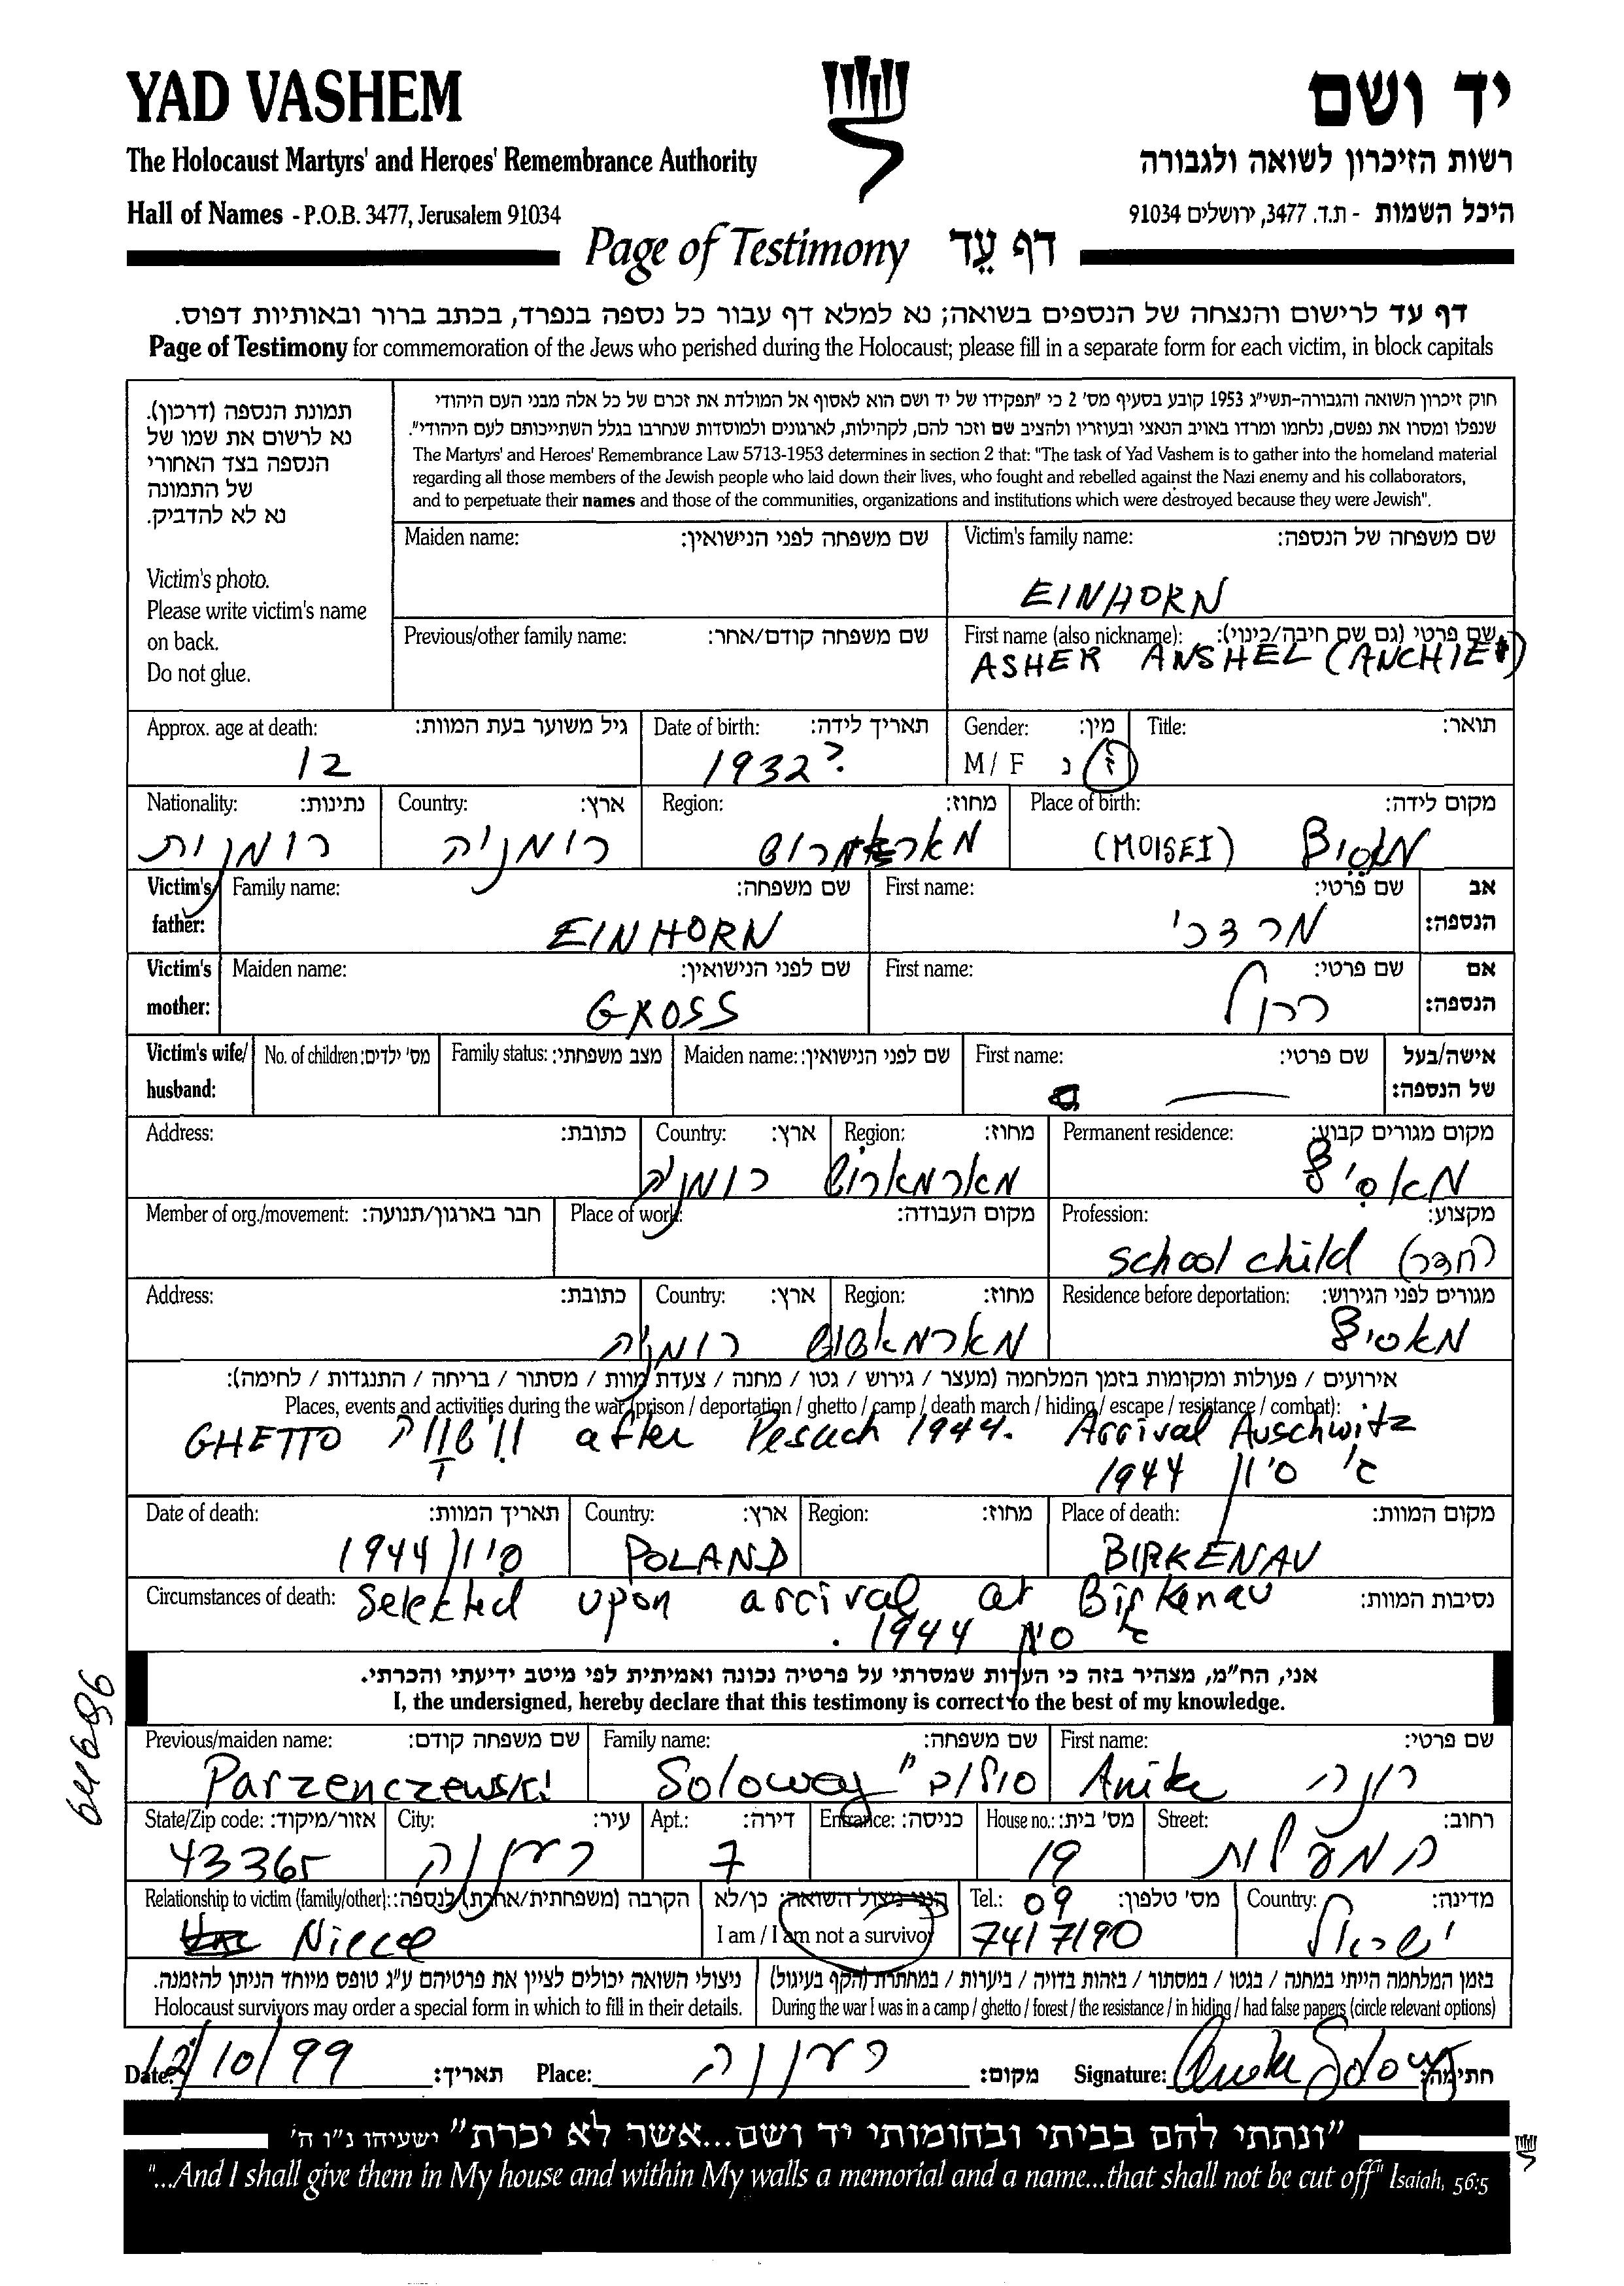 YAD VASHEM
יד ושם
The Holocaust Martyrs' and Heroes' Remembrance Authority
רשות הזיכרון לשואה ולגבורה
Hall of Names - P.O.B. 3477, Jerusalem 91034
היכל השמות - ת.ד. 3477, ירושלים 91034
Page of Testimony דף עֵד
דף עד לרישום והנצחה של הנספים בשואה; נא למלא דף עבור כל נספה בנפרד, בכתב ברור ובאותיות דפוס.
Page of Testimony for commemoration of the Jews who perished during the Holocaust; please fill in a separate form for each victim, in block capitals
תמונת הנספה (דרכון).
נא לרשום את שמו של
הנספה בצד האחורי
של התמונה
נא לא להדביק.
Victim's photo.
Please write victim's name
on back.
Do not glue.
חוק זיכרון השואה והגבורה-תשי"ג 1953 קובע בסעיף מס' 2 כי "תפקידו של יד ושם הוא לאסוף אל המולדת את זכרם של כל אלה מבני העם היהודי
שנפלו ומסרו את נפשם, נלחמו ומרדו באויב הנאצי ובעוזריו ולהציב שם וזכר להם, לקהילות, לארגונים ולמוסדות שנחרבו בגלל השתייכותם לעם היהודי".
The Martyrs' and Heroes' Remembrance Law 5713-1953 determines in section 2 that: "The task of Yad Vashem is to gather into the homeland material
regarding all those members of the Jewish people who laid down their lives, who fought and rebelled against the Nazi enemy and his collaborators,
and to perpetuate their names and those of the communities, organizations and institutions which were destroyed because they were Jewish".
Maiden name: שם משפחה לפני הנישואין:
Victim's family name: שם משפחה של הנספה:
EINHORN
Previous/other family name: שם משפחה קודם/אחר:
First name (also nickname): שם פרטי (גם שם חיבה/כינוי):
ASHER ANSHEL (ANCHIE)
Approx. age at death: גיל משוער בעת המוות:
12
Date of birth: תאריך לידה:
1932?
Gender: מין:
M / F ז נ
Title: תואר:
Nationality: נתינות:
רומנית
Country: ארץ:
רומניה
Region: מחוז:
Place of birth: מקום לידה:
(MOISEI)
Victim's father: אב הנספה:
Family name: שם משפחה:
EINHORN
First name: שם פרטי:
מרדכי
Victim's mother: אם הנספה:
Maiden name: שם לפני הנישואין:
GROSS
First name: שם פרטי:
Victim's wife/ husband: אישה/בעל של הנספה:
No. of children: מס' ילדים:
Family status: מצב משפחתי:
Maiden name: שם לפני הנישואין:
First name: שם פרטי:
Address: כתובת:
Country: ארץ:
רומניה
Region: מחוז:
מארמארוש
Permanent residence: מקום מגורים קבוע:
מאסיף
Member of org./movement: חבר בארגון/תנועה:
Place of work: מקום העבודה:
Profession: מקצוע:
school child (חדר)
Address: כתובת:
Country: ארץ:
רומניה
Region: מחוז:
Residence before deportation: מגורים לפני הגירוש:
אירועים / פעולות ומקומות בזמן המלחמה (מעצר / גירוש / גטו / מחנה / צעדת מוות / מסתור / בריחה / התנגדות / לחימה):
Places, events and activities during the war (prison / deportation / ghetto / camp / death march / hiding / escape / resistance / combat):
GHETTO ווישווה after Pesach 1944. Arrival Auschwitz
ב' סיון 1944
Date of death: תאריך המוות:
סיון 1944
Country: ארץ:
POLAND
Region: מחוז:
Place of death: מקום המוות:
BIRKENAU
Circumstances of death: נסיבות המוות:
Selected upon arrival at Birkenau
ב סיון 1944.
אני, הח"מ, מצהיר בזה כי העדות שמסרתי על פרטיה נכונה ואמיתית לפי מיטב ידיעתי והכרתי.
I, the undersigned, hereby declare that this testimony is correct to the best of my knowledge.
Previous/maiden name: שם משפחה קודם:
Parzenczewski
Family name: שם משפחה:
Soloway
First name: שם פרטי:
Anita
State/Zip code: אזור/מיקוד:
43365
City: עיר:
רעננה
Apt.: דירה:
7
Entrance: כניסה:
House no.: מס' בית:
19
Street: רחוב:
המעלות
Relationship to victim (family/other): הקרבה (משפחתית/אחרת) לנספה:
Niece
הנני ניצול השואה: כן/לא
I am / I am not a survivor
Tel.: מס' טלפון:
09
7417190
Country: מדינה:
ישראל
ניצולי השואה יכולים לציין את פרטיהם ע"ג טופס מיוחד הניתן להזמנה.
Holocaust survivors may order a special form in which to fill in their details.
בזמן המלחמה הייתי במחנה / בגטו / במסתור / בזהות בדויה / ביערות / במחתרת (הקף בעיגול)
During the war I was in a camp / ghetto / forest / the resistance / in hiding / had false papers (circle relevant options)
Date: 12/10/99 תאריך:
Place: רעננה מקום:
Signature: חתימה:
64696
"ונתתי להם בביתי ובחומותי יד ושם...אשר לא יכרת" ישעיהו נ"ו ה'
"...And I shall give them in My house and within My walls a memorial and a name...that shall not be cut off" Isaiah, 56:5